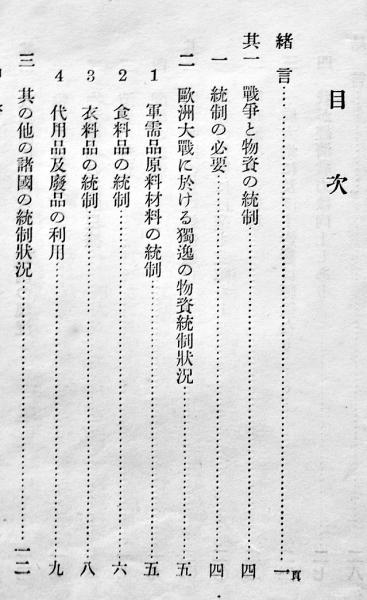 目次
緒言……………………………一頁
其一 戰爭と物資の統制……………………………四
一 統制の必要……………………………四
二 歐洲大戰に於ける獨逸の物資統制狀況……………………………五
1 軍需品原料材料の統制……………………………五
2 食料品の統制……………………………六
3 衣料品の統制……………………………八
4 代用品及廢品の利用……………………………九
三 其の他の諸國の統制狀況……………………………一二